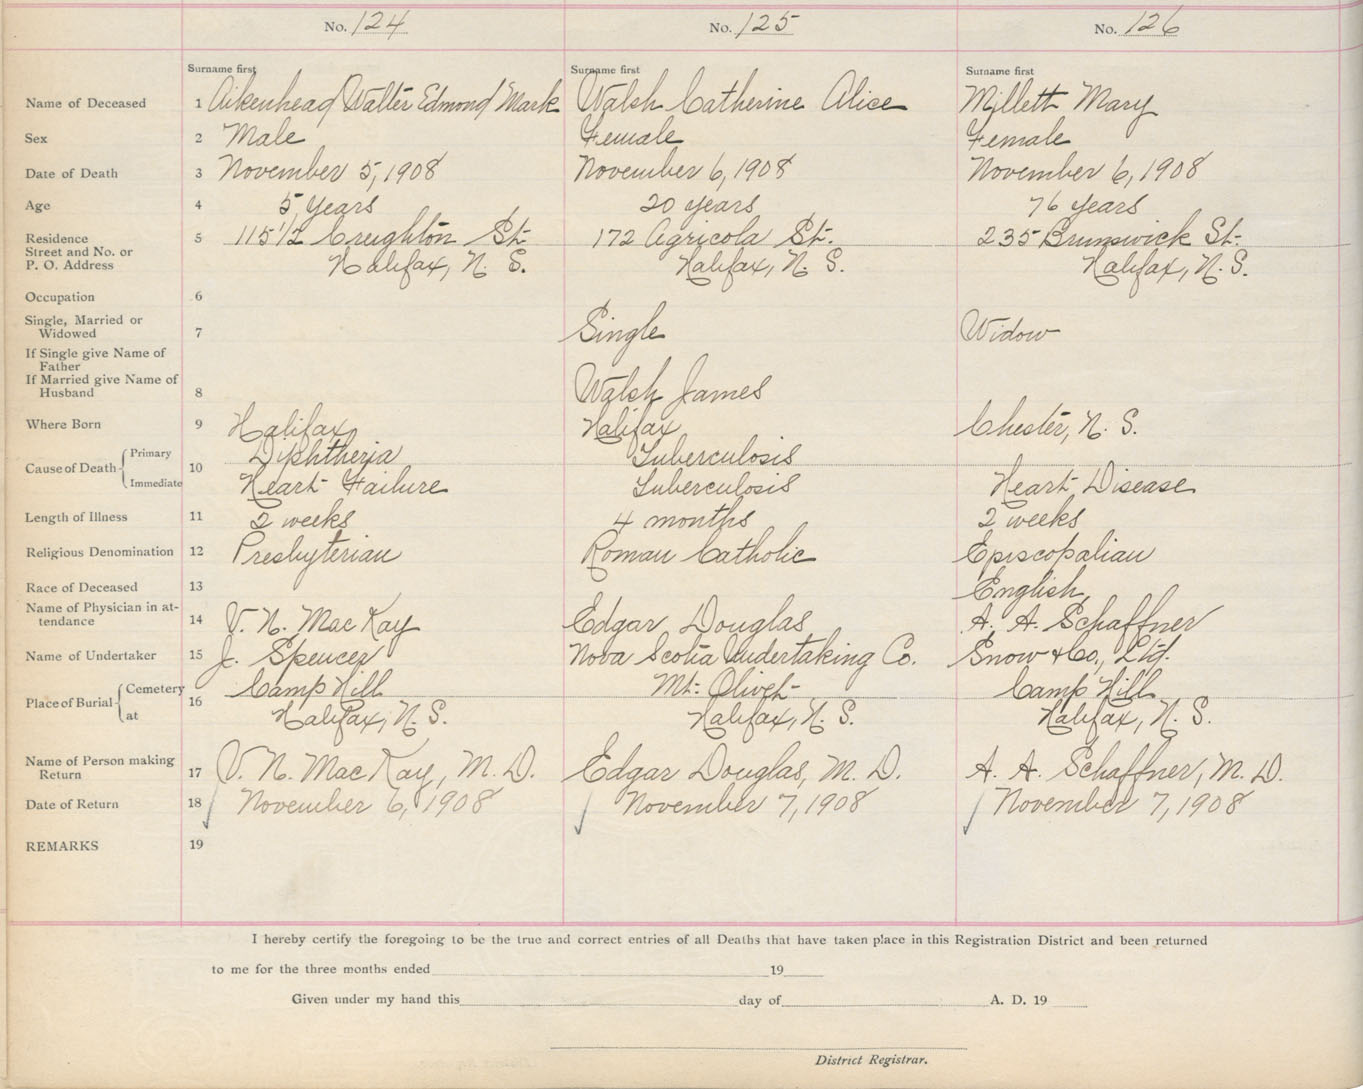 No. 124 No. 125 No. 126
Surname first Surname first Surname first
Name of Deceased 1 Aikenhead Walter Edmond Mark Walsh Catherine Alice Millett Mary
Sex 2 Male Female Female
Date of Death 3 November 5, 1908 November 6, 1908 November 6, 1908
Age 4 5 years 20 years 76 years
Residence 5 115 1/2 Creighton St. 172 Agricola St. 235 Brunswick St.
Street and No. or
P. O. Address Halifax, N. S. Halifax, N. S. Halifax, N. S.
Occupation 6
Single, Married or
Widowed 7 Single Widow
If Single give Name of
Father
If Married give Name of
Husband 8 Walsh James
Where Born 9 Halifax Halifax Chester, N. S.
Primary Diphtheria Tuberculosis
Cause of Death 10
Immediate Heart Failure Tuberculosis Heart Disease
Length of Illness 11 2 weeks 4 months 2 weeks
Religious Denomination 12 Presbyterian Roman Catholic Episcopalian
Race of Deceased 13 English
Name of Physician in at-
tendance 14 V. N. MacKay Edgar Douglas A. A. Schaffner
Name of Undertaker 15 J. Spencer Nova Scotia Undertaking Co. Snow & Co., Ltd.
Cemetery Camp Hill Mt. Olivet Camp Hill
Place of Burial 16
at Halifax, N. S. Halifax, N. S. Halifax, N. S.
Name of Person making
Return 17 V. N. MacKay, M. D. Edgar Douglas, M. D. A. A. Schaffner, M. D.
Date of Return 18 November 6, 1908 November 7, 1908 November 7, 1908
REMARKS 19
I hereby certify the foregoing to be the true and correct entries of all Deaths that have taken place in this Registration District and been returned
to me for the three months ended 19
Given under my hand this day of A. D. 19
District Registrar.